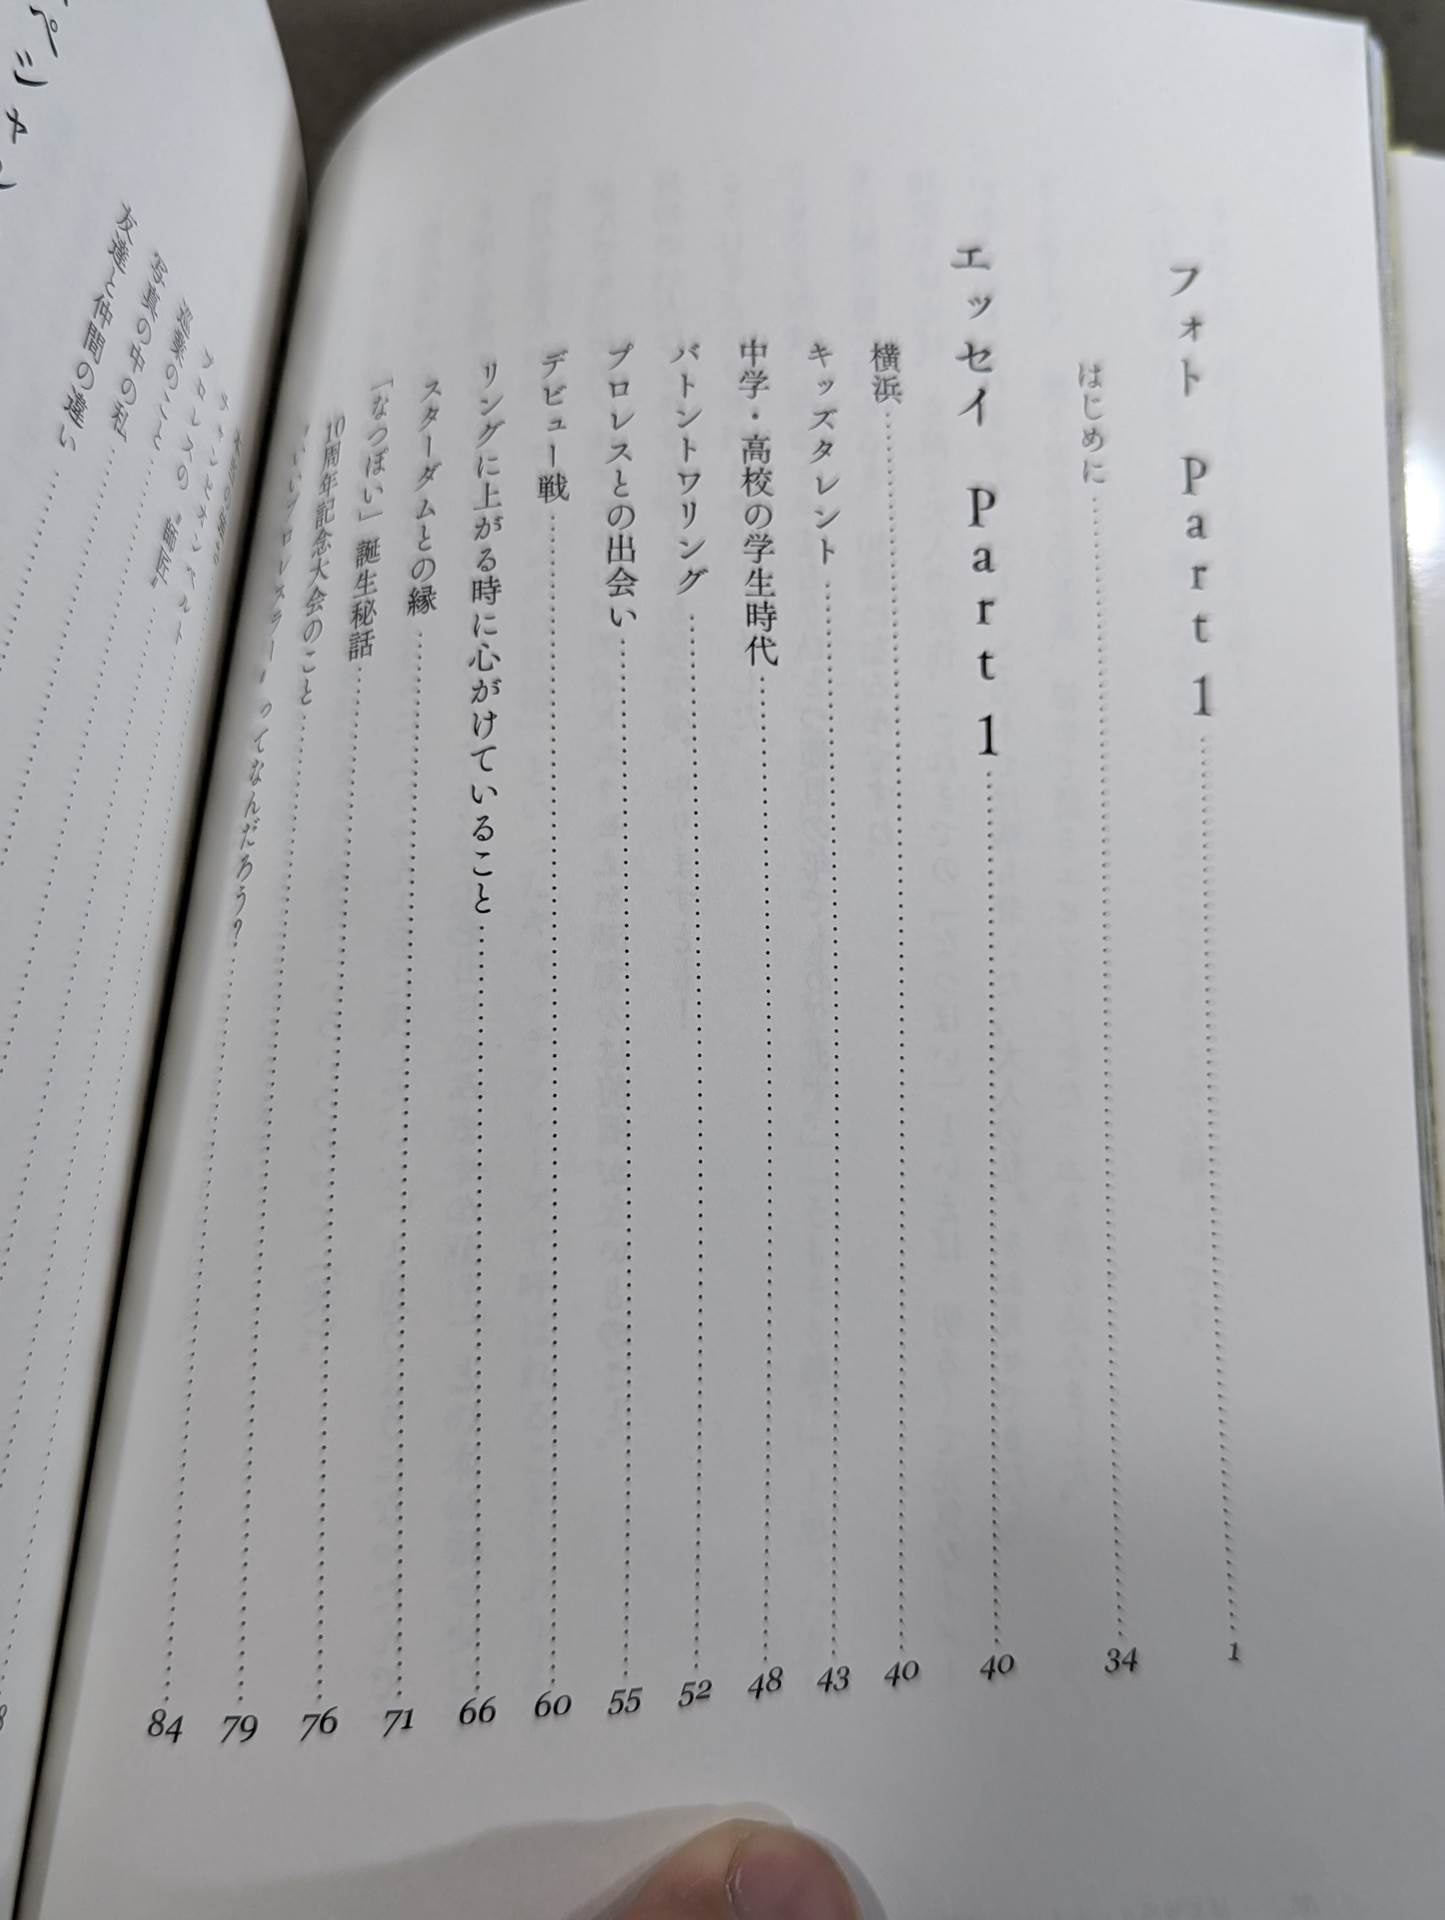 フォト Part 1 1
はじめに 34
エッセイ Part 1 40
横浜 40
キッズタレント 43
中学・高校の学生時代 48
バトントワリング 52
プロレスとの出会い 55
デビュー戦 60
リングに上がる時に心がけていること 66
スターダムとの縁 71
「なつぽい」誕生秘話 76
10周年記念大会のこと 79
いいプロレスラーってなんだろう? 84
プロレスの“師匠”
巡業のこと
写真の中の私
友達と仲間の違い
ペシャル